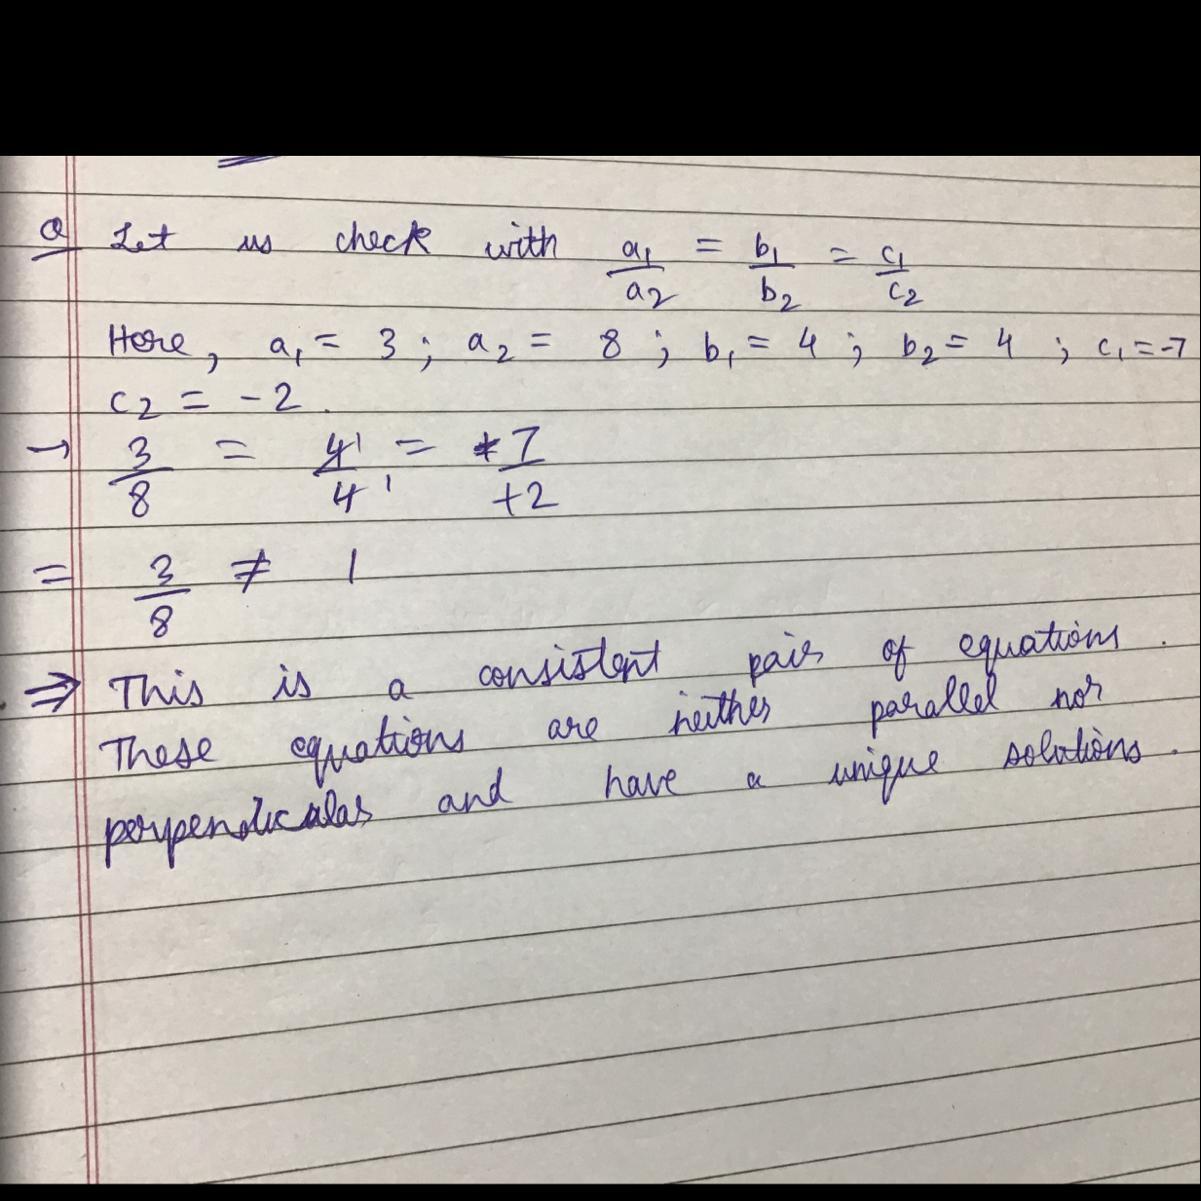 Q Let us check with a1/a2 = b1/b2 = c1/c2
Here, a1 = 3 ; a2 = 8 ; b1 = 4 ; b2 = 4 ; c1 = -7
c2 = -2.
→ 3/8 = 4 1/4 1 = +7/+2
= 3/8 ≠ 1
⇒ This is a consistent pair of equations.
These equations are neither parallel nor
perpendicular and have a unique solutions.